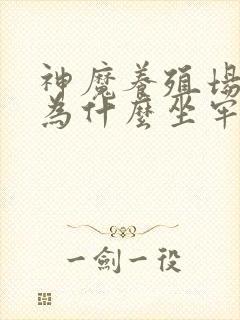 神魔養殖場
為什麼坐牢
一劍一役